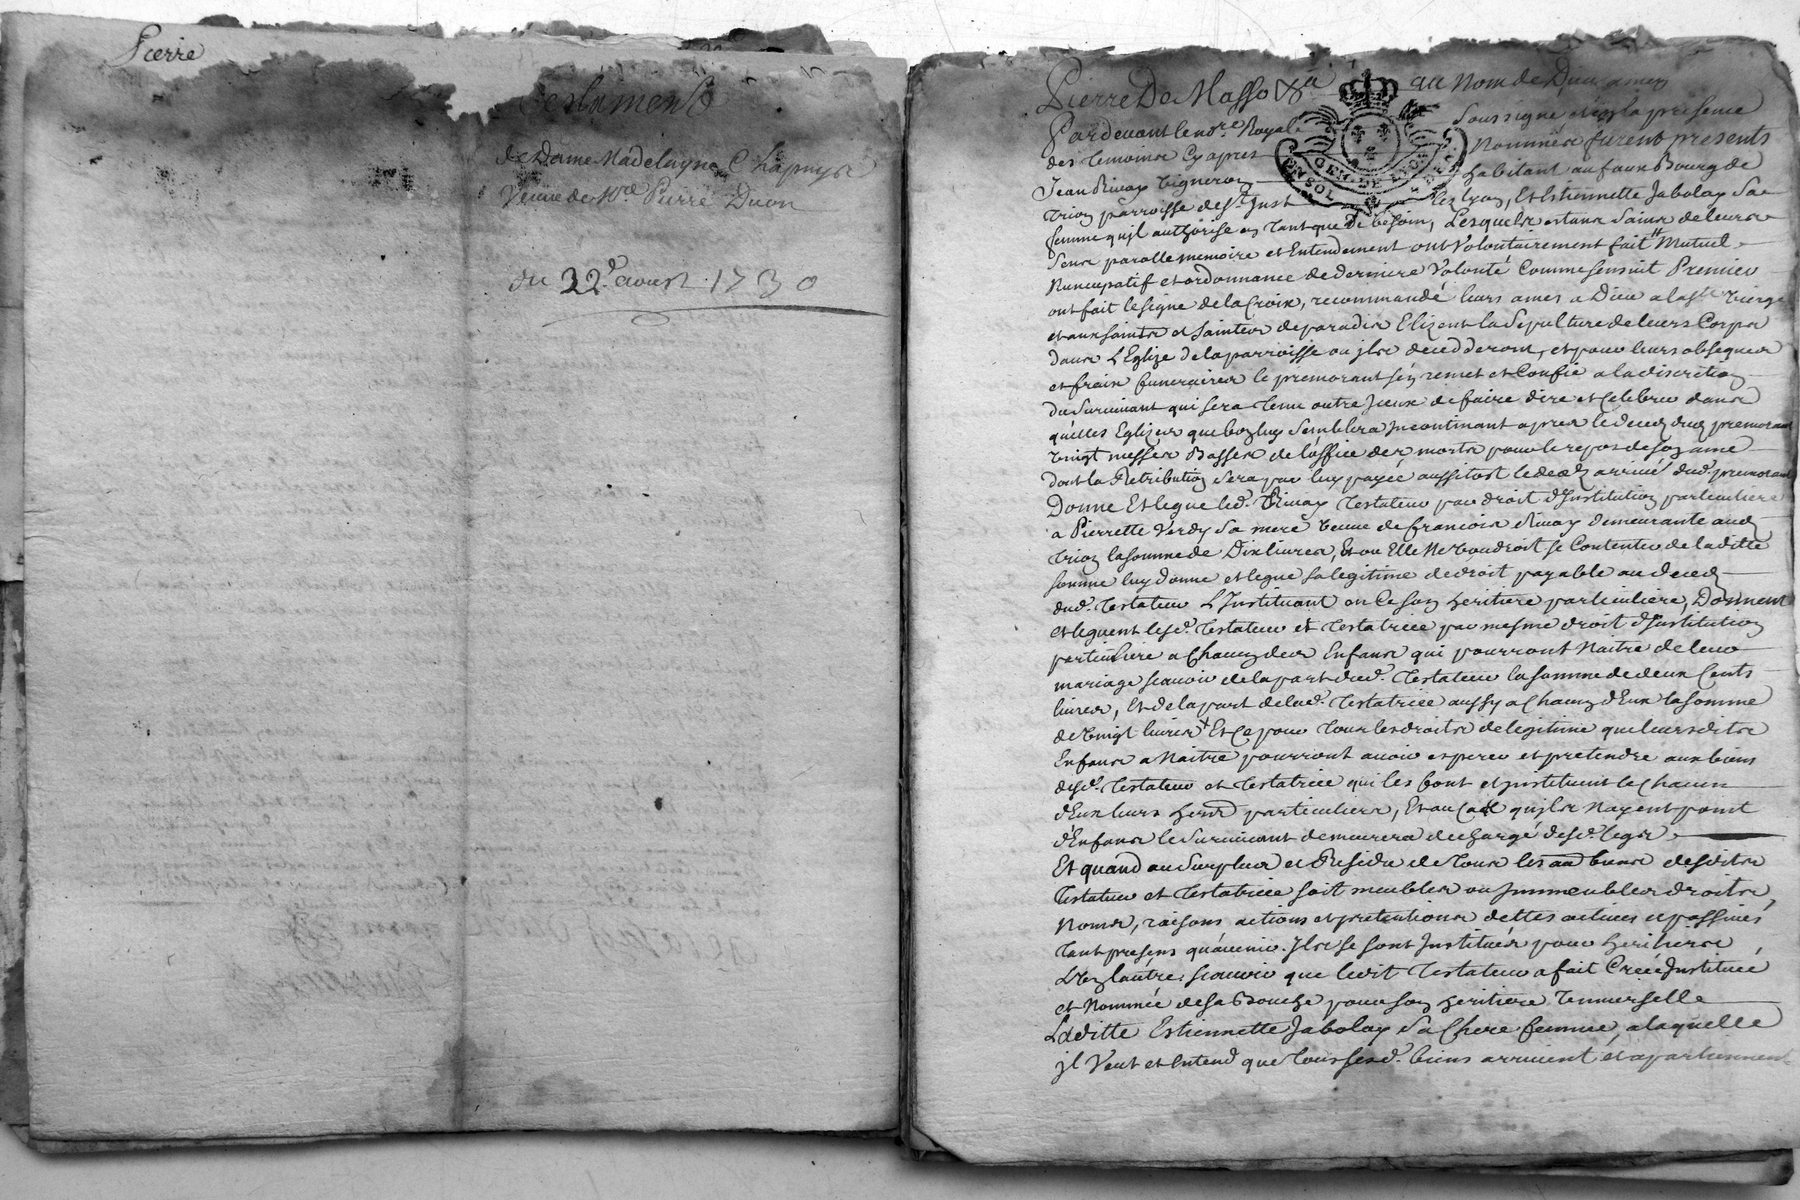 Pierre
Testament
de Dame Madelayne Chapuys
Veuve de Mre Pierre Duon
du 22e. aoust 1730
Pierre De Masso &a
au Nom de Dieu amen
Pardevant le nore. Royal
soussigné et en la presence
des temoins Cy apres
Nommés furent presents
GEN. DE LYON
Jean Rivay Vigneron
habitant au faux Bourg de
trion parroisse de St. Just
lez Lyon, Et Estiennette Jabolay sa
femme qu'il authorise en tant que de besoin, Lesquels estans sains de leurs
sens parolle memoire et Entendement ont Volontairement fait Mutuel
Nuncupatif et ordonnance de derniere Volonté Comme sensuit Premier
ont fait le signe de la Croix, recommandé leurs ames a Dieu a la ste. Vierge
et aux saints et saintes de paradis Elizent la Sepulture de leurs Corps
dans L'Eglize de la parroisse ou jls decedderont, et pour leurs obseques
et frais funeraires le premorant s'en remet et Confie a la discretion
du Survivant qui sera tenu outre jceux de faire dire et Celebrer dans
qu'elles Eglizes que bon luy Semblera jncontinant apres le deced du premorant
vingt messes Basses de l'office des morts pour le repos de son ame
dont la Retribution sera par luy payée aussitost le deced arrivé dud. premorant
Donne Et legue led. Rivay testateur par droit d'Institution particuliere
a Pierrette Verdy sa mere veuve de francois Rivay demeurante aud.
trion la somme de Dix livres, Et ou Elle Ne voudroit se Contenter de laditte
somme luy donne et legue sa legitime de droit payable au deced
dud. testateur L'Instituant en Ce son heritiere particuliere, Donnent
et leguent lesd. testateur et testatrice par mesme droit d'Institution
particuliere a chacun des Enfans qui pourront Naitre de leur
mariage scavoir de la part dud. testateur la somme de deux Cents
livres, Et de la part de lad. testatrice aussy a Chacun d'Eux la somme
de vingt livres Et Ce pour tous les droits de legitime que leursdits
Enfans a Naitre pourront avoir esperer et pretendre aux biens
desd. testateur et testatrice qui les font et jnstituent le Chacun
d'Eux leurs hers. particuliers, Et au Cas qu'jls Nayent point
d'Enfans le Survivant demeurera dechargé desd. legs.
Et quand au Surplus et Residu de tous les biens desdits
testateur et testatrice soit meubles ou jmmeubles droits,
Noms, raisons actions et pretentions dettes actives et passives
tant presens qu'avenir. Jls se sont Institués pour heritiers
L'un l'autre, scavoir que ledit testateur a fait Créé Institué
et Nommée de sa Bouche pour son heritiere Universelle
Laditte Estiennette Jabolay sa Chere femme, a laquelle
jl Veut et Entend que tous sesd. biens arrivent et apartiennent